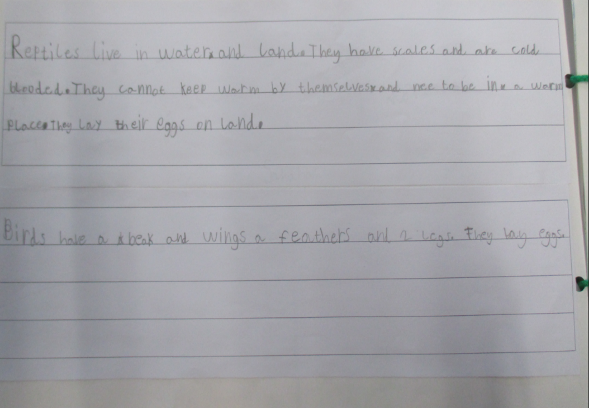 Reptiles live in water and land. They have scales and are cold
blooded. They cannot keep warm by themselves and nee to be in a warm
place. They lay their eggs on land.
Birds have a beak and wings a feathers and 2 legs. They lay eggs.